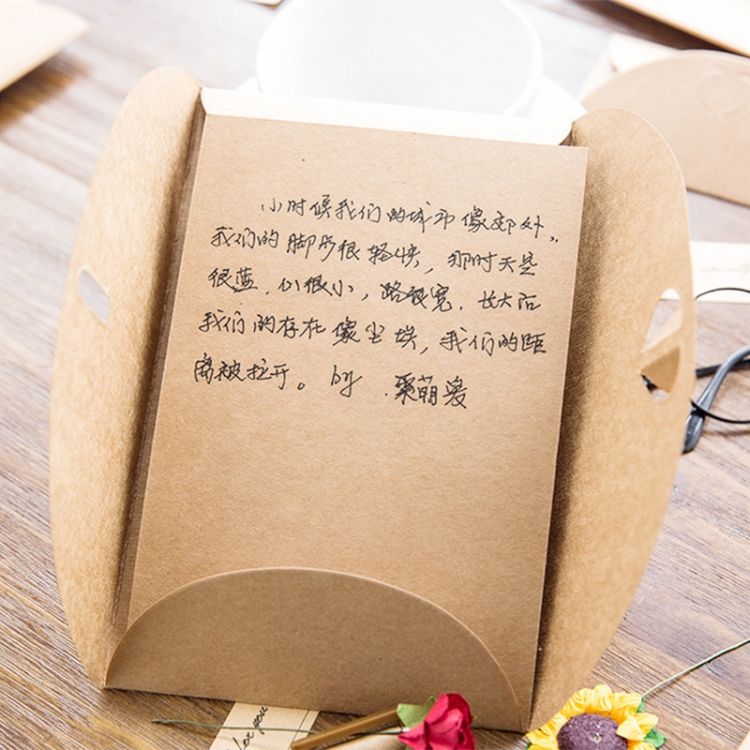 小时候我们的城市像郊外..
我们的脚步很轻快，那时天空
很蓝，心很小，路很宽，长大后
我们的存在像尘埃，我们的距
离被拉开。by .聚萌爱
for you